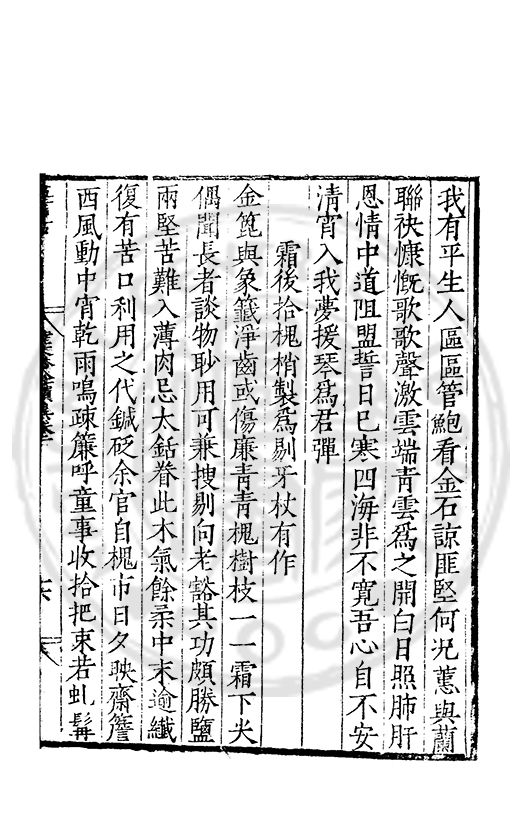 我有平生人區區管鮑看金石諒匪堅何况蕙與蘭
聯袂慷慨歌歌聲激雲端青雲爲之開白日照肺肝
恩情中道阻盟誓日已寒四海非不寛吾心自不安
清宵入我夢援琴爲君彈
霜後拾槐梢製爲剔牙杖有作
金篦與象籤淨齒或傷廉青青槐樹枝一一霜下尖
偶聞長者談物眇用可兼搜剔向老豁其功頗勝鹽
兩堅苦難入薄肉忌太銛眷此木氣餘柔中末逾纎
復有苦口利用之代鍼砭余官自槐市日夕映齋簷
西風動中宵乾雨鳴疎簾呼童事收拾把束若虬髯